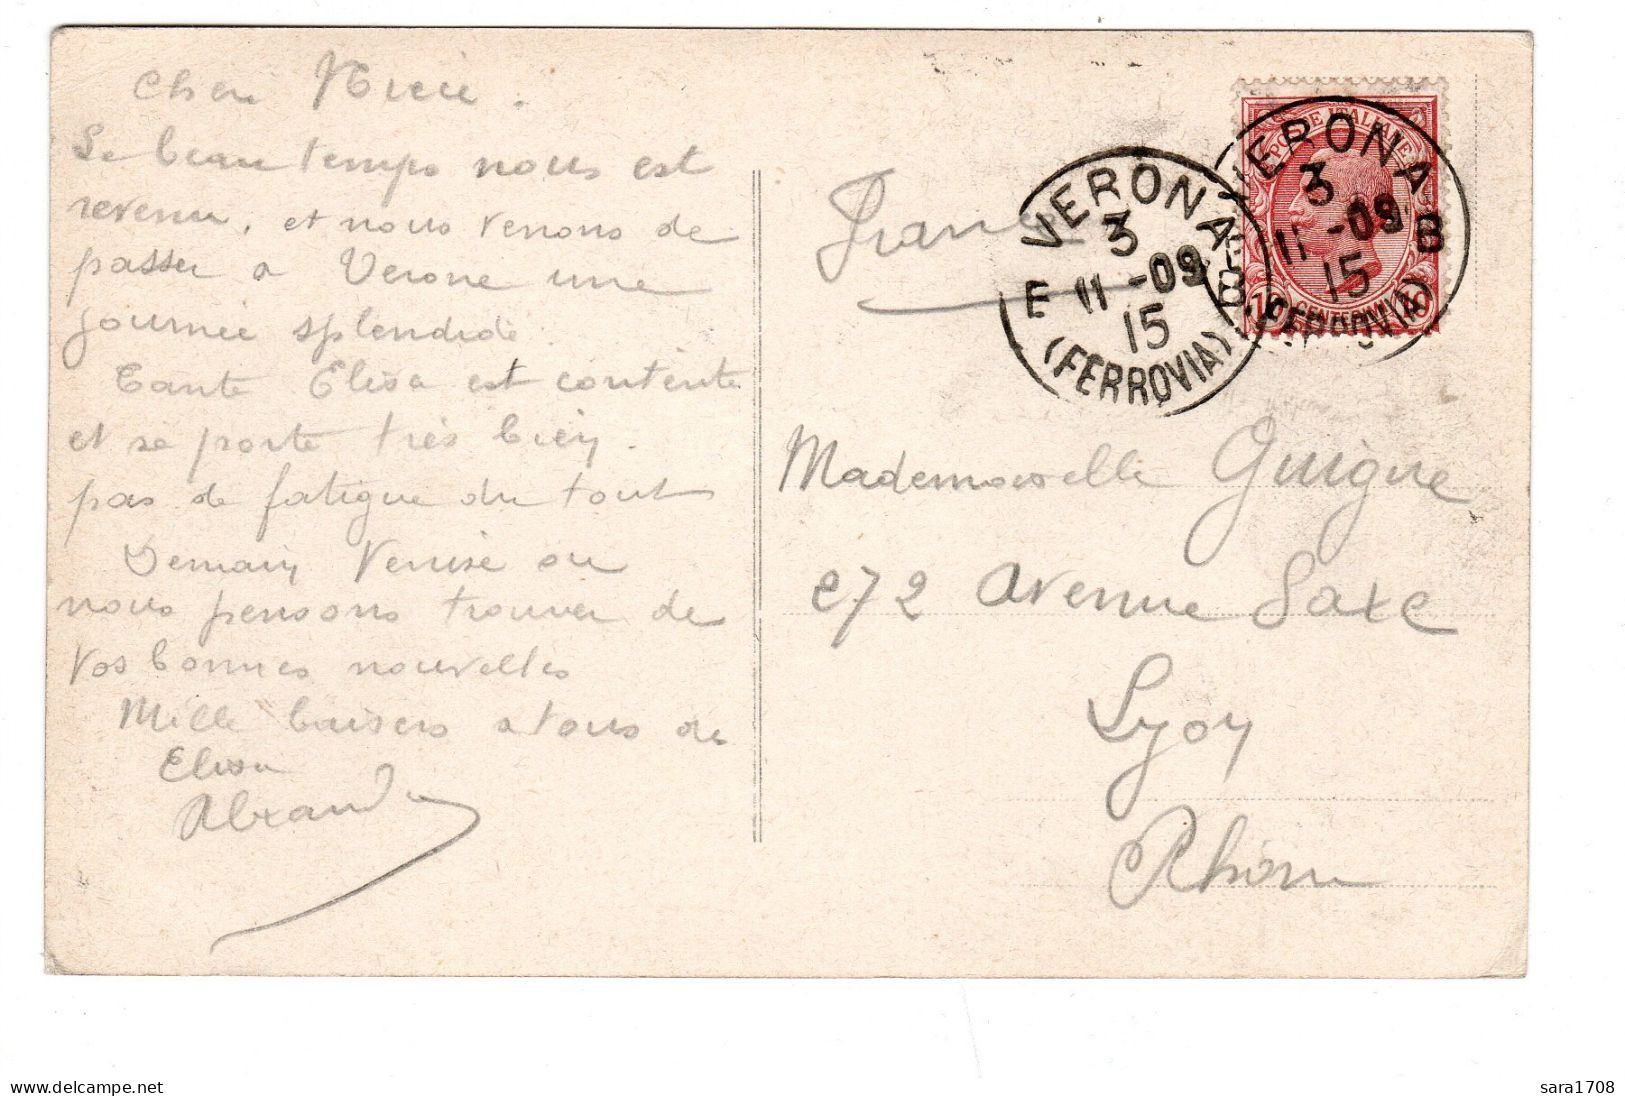 Cheri
Le beau temps nous est
revenu, et nous venons de
passer a Verone une
journée splendide.
Tante Elisa est contente
et se porte très bien.
pas de fatigue du tout
Demain Venise ou
nous pensons trouver de
vos bonnes nouvelles
Mille baisers a tous de
Elisa
France
VERONA
3
E 11 -09
15
(FERROVIA)
VERONA
3
11 -09 B
15
(FERROVIA)
POSTE ITALIANE
10 CENTESIMI 10
Mademoiselle Guigue
272 Avenue Saxe
Lyon
Rhone
delcampe.net
sara1708